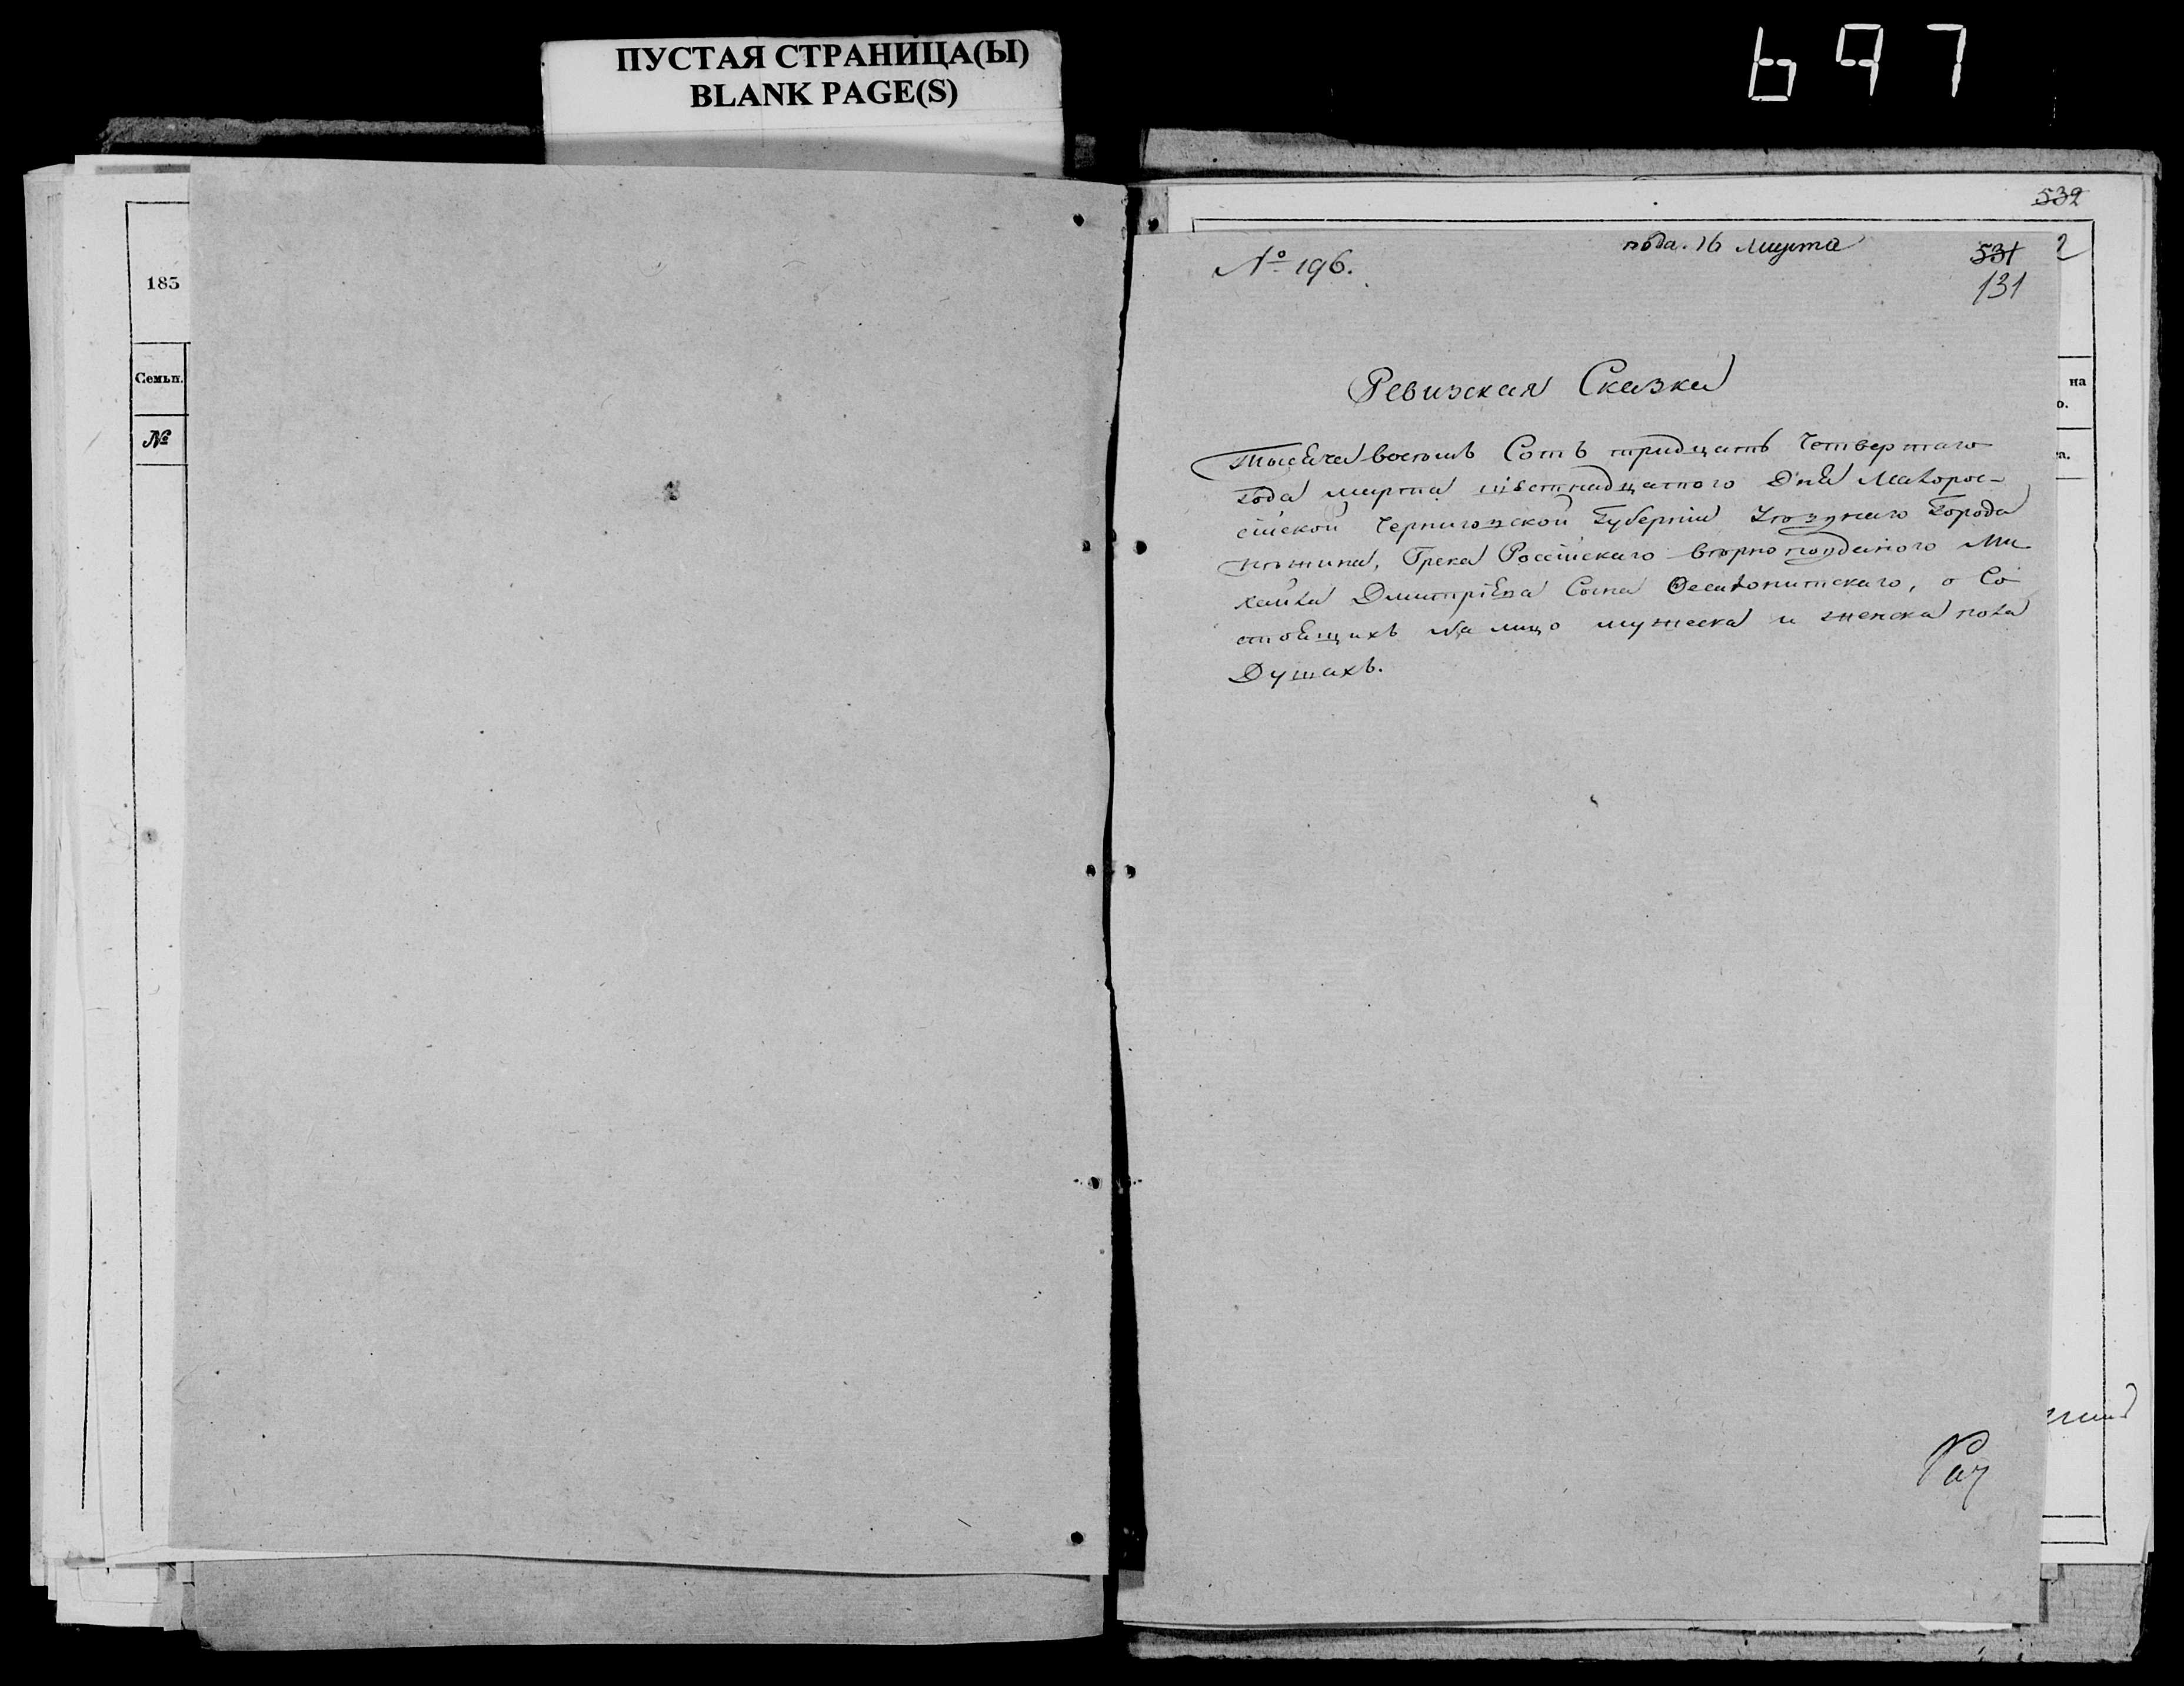 ПУСТАЯ СТРАНИЦА(Ы)
BLANK PAGE(S)
697
185
Семьи.
№
532
2
на
о.
а.
№ 196.
пода. 16 марта
531
131
Ревизская Сказка
Тысяча восемь Сотъ тридцать Четвертаго
Года марта шестнадцатого Дня Малорос-
сійской Черниговской Губерніи Уѣзднаго Города
Нѣжина, Грека Россійскаго вѣрноподданого Ми
хайла Дмитріева Сына Ѳесалонитскаго, о Со
стоящихъ на лицо мужеска и женска пола
Душахъ.